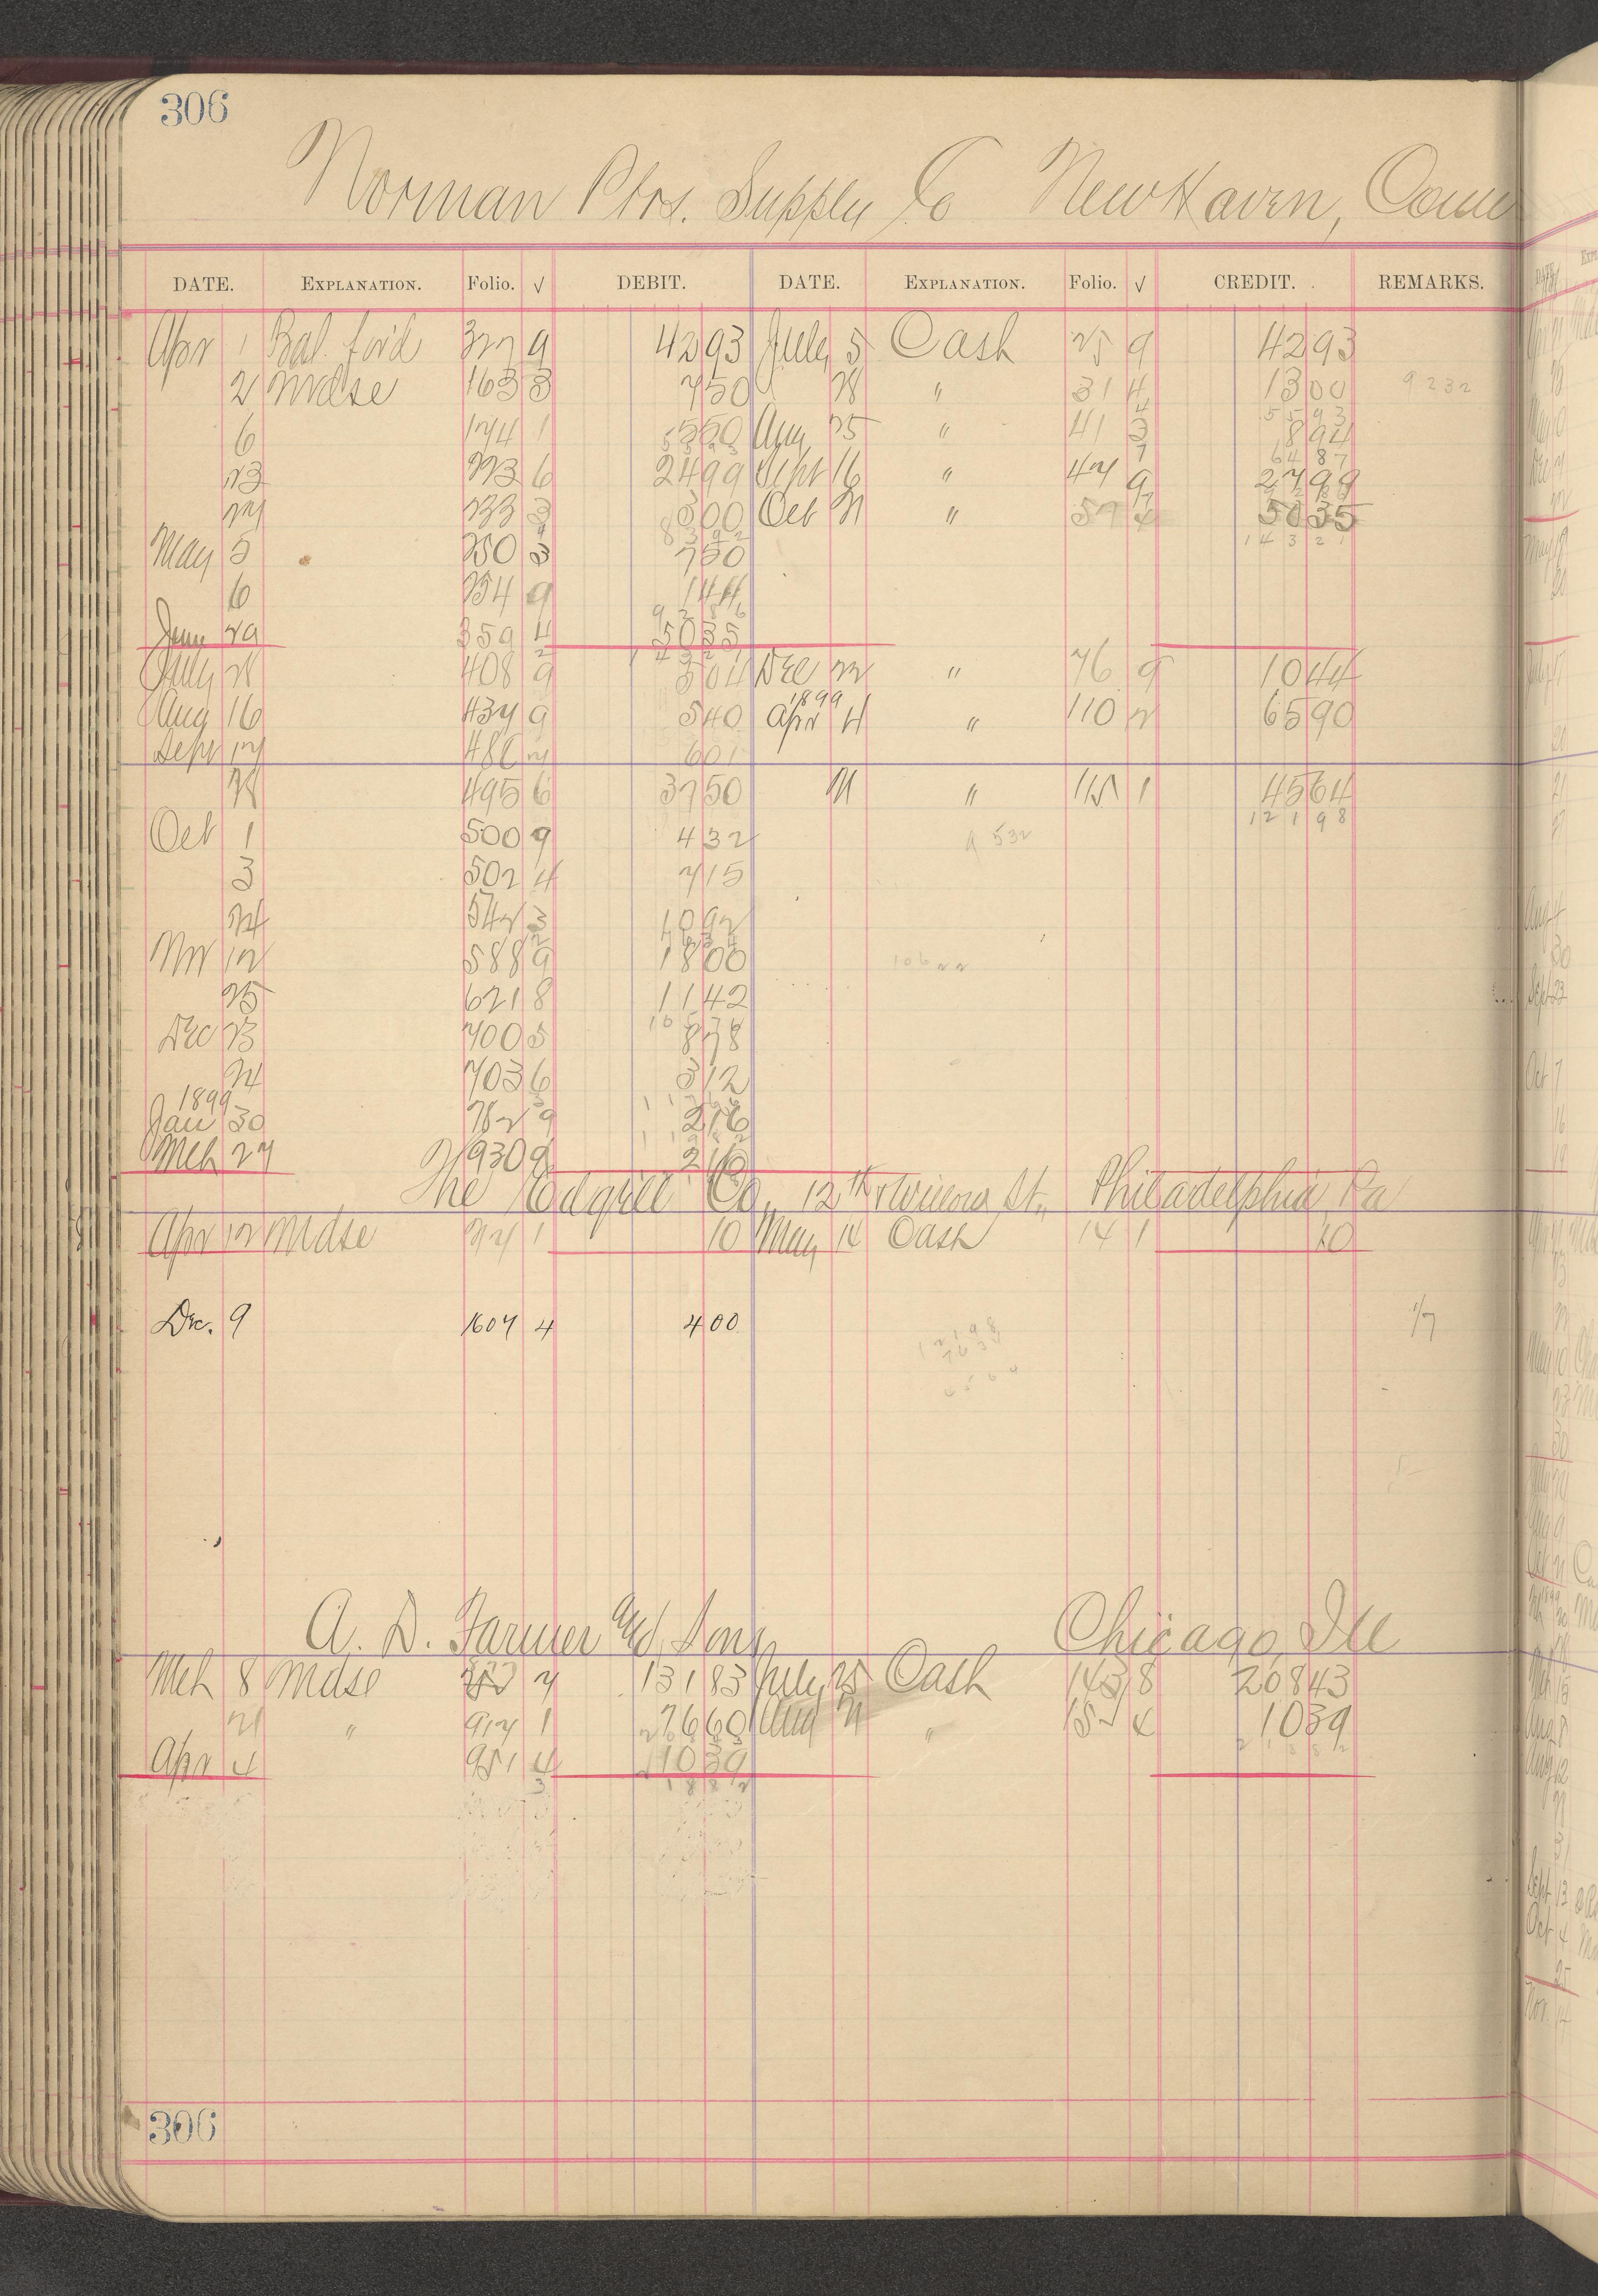 306
Norman Ptrs. Supply Co New Haven, Conn
DATE. EXPLANATION. Folio. √ DEBIT. DATE. EXPLANATION. Folio. √ CREDIT. REMARKS.
Apr 1 Bal. for'd 327 9 42 93 July 5 Cash 25 9 42 93
2 Mdse 163 3 7 50 28 " 31 4 13 00 9232
55 93
6 174 1 5 50 Aug 25 " 41 3 8 94
64 87
23 223 6 24 99 Sept 16 " 47 9 27 99
27 233 3 3 00 Oct 21 " 57 4 50 35
83 92 143 21
May 5 250 3 7 50
6 254 9 1 44
92 86
June 29 359 4 50 35
July 28 408 9 5 04 Dec 22 " 76 9 10 44
1899
Aug 16 437 9 5 40 Apr 4 " 110 2 65 90
Sept 17 480 7 6 01
28 495 6 37 50 21 " 115 1 45 64
121 98
Oct 1 500 9 4 32 9 532
3 502 4 7 15
24 542 3 10 92
Nov 12 588 9 18 00 10622
25 621 8 11 42
Dec 23 700 5 8 78
24 703 6 3 12
1899
Jan 30 782 9 2 16
Mch 27 930 9 2 16
The Edgell Co., 12th & Willow St., Philadelphia Pa
Apr 12 Mdse 27 1 10 May 14 Cash 14 1 10
Dec. 9 1607 4 4 00 1/7
12198
7634
A. D. Farmer and Sons Chicago, Ill
Mch 8 Mdse 7 131 83 July 25 Cash 143 8 208 43
21 " 917 1 76 60 Aug 21 " 15 4 10 39
218 82
Apr 4 951 4 10 39
306